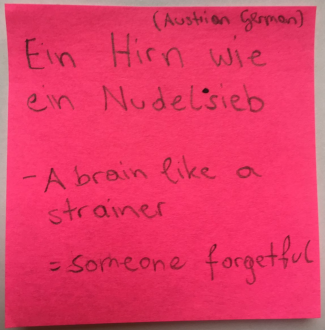 (Austrian German)
Ein Hirn wie
ein Nudelsieb
- A brain like a
strainer
= someone forgetful